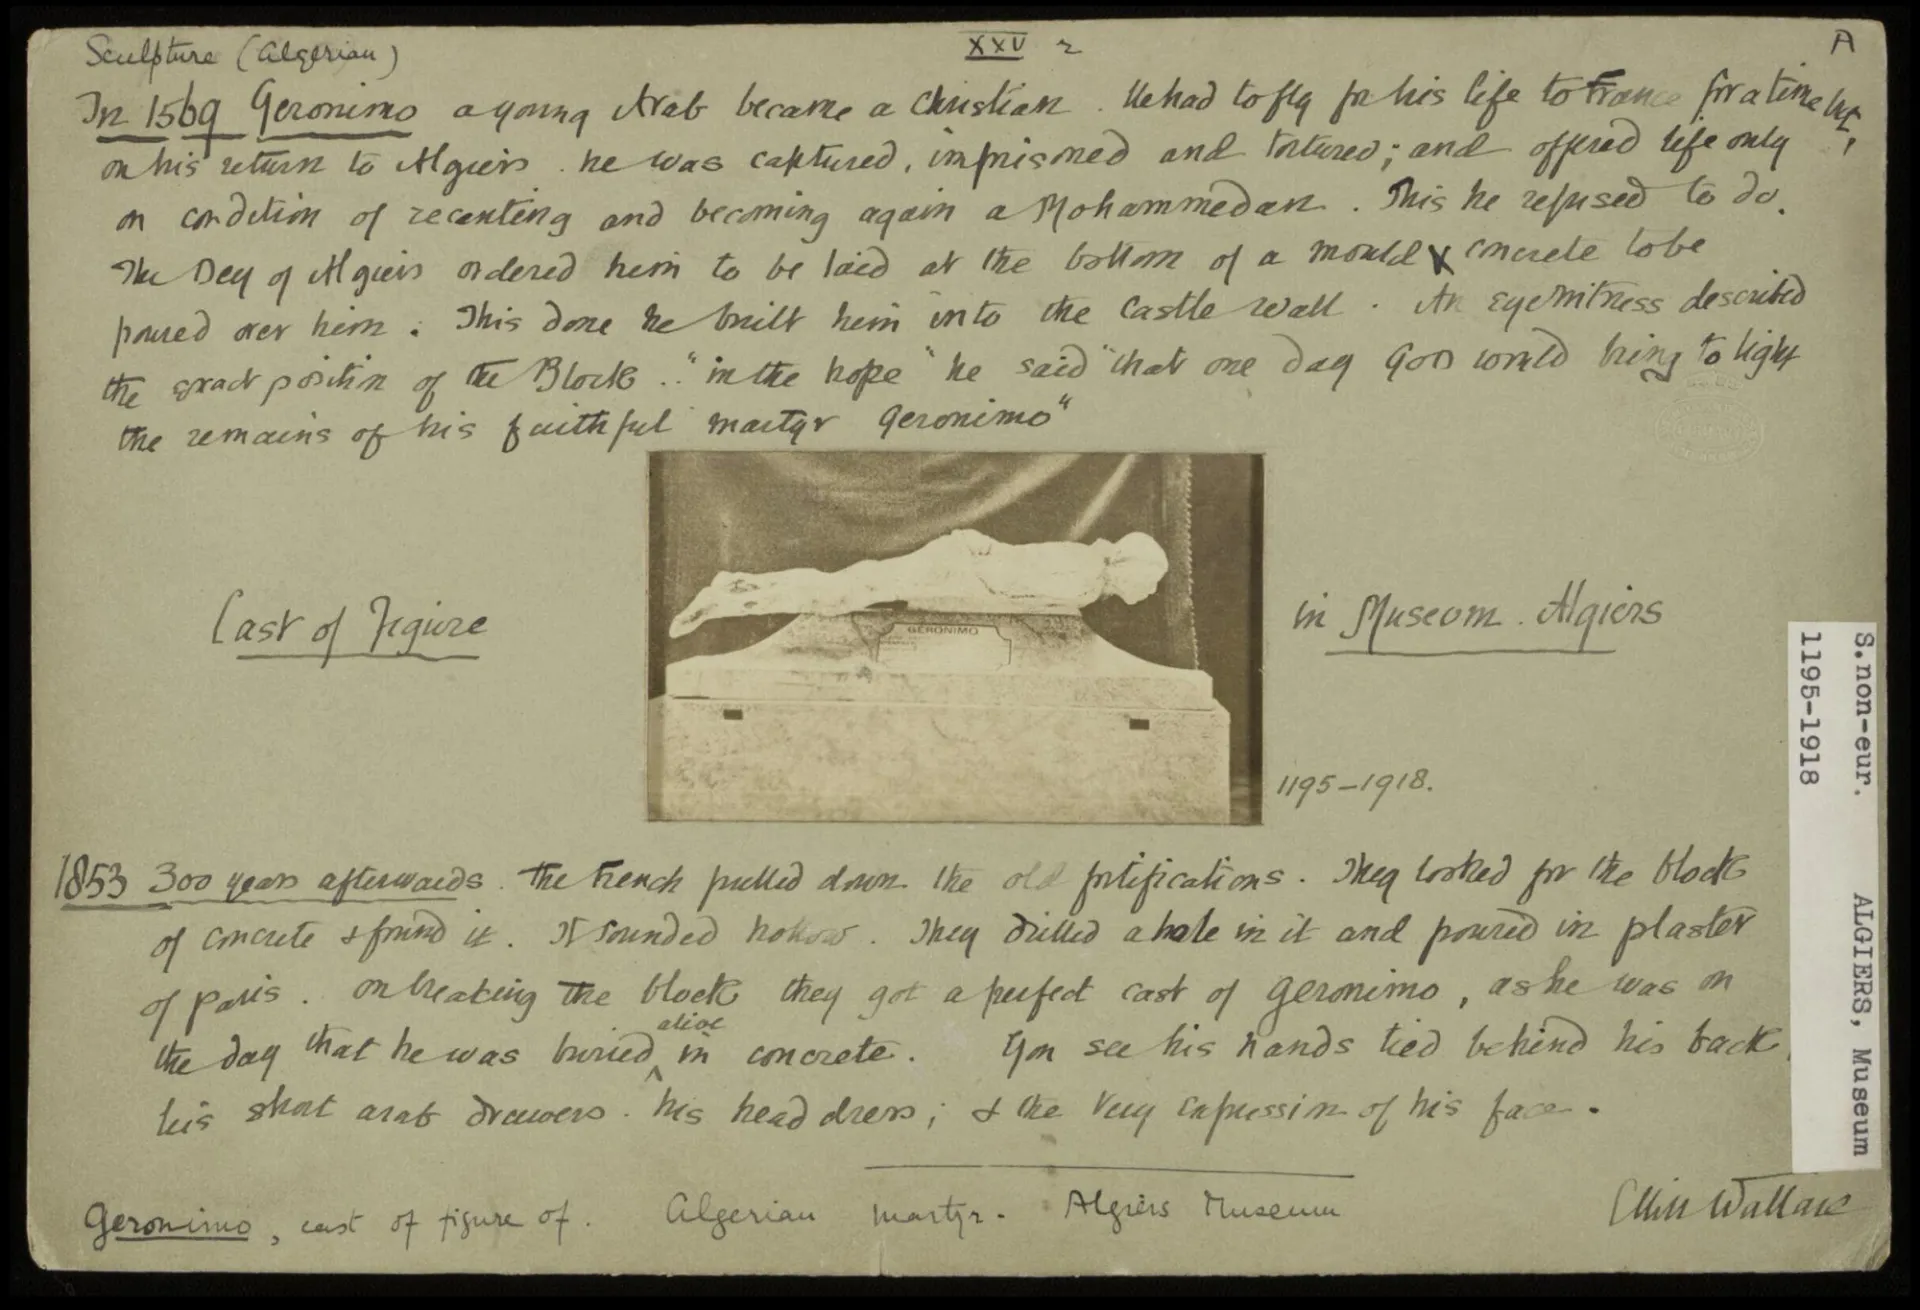 Sculpture (Algerian)
XXV 2
A
In 1569 Geronimo a young Arab became a Christian. He had to fly for his life to France for a time but,
on his return to Algiers he was captured, imprisoned and tortured; and offered life only
on condition of recanting and becoming again a Mohammedan. This he refused to do.
The Dey of Algiers ordered him to be laid at the bottom of a mould & concrete to be
poured over him. This done he built him into the castle wall. An eyewitness described
the exact position of the Block.. "in the hope" he said "that one day God would bring to light
the remains of his faithful martyr Geronimo"
Cast of Figure
GERONIMO
in Museum. Algiers
1195-1918.
1853 300 years afterwards. The French pulled down the old fortifications. They looked for the block
of concrete & found it. It sounded hollow. They drilled a hole in it and poured in plaster
of paris. on breaking the block they got a perfect cast of Geronimo, as he was on
the day that he was buried alive in concrete. You see his hands tied behind his back,
his short arab drawers. his head dress; & the very expression of his face.
Geronimo, cast of figure of. Algerian martyr. Algiers Museum
Elliot Wallace
S.non-eur. ALGIERS, Museum
1195-1918